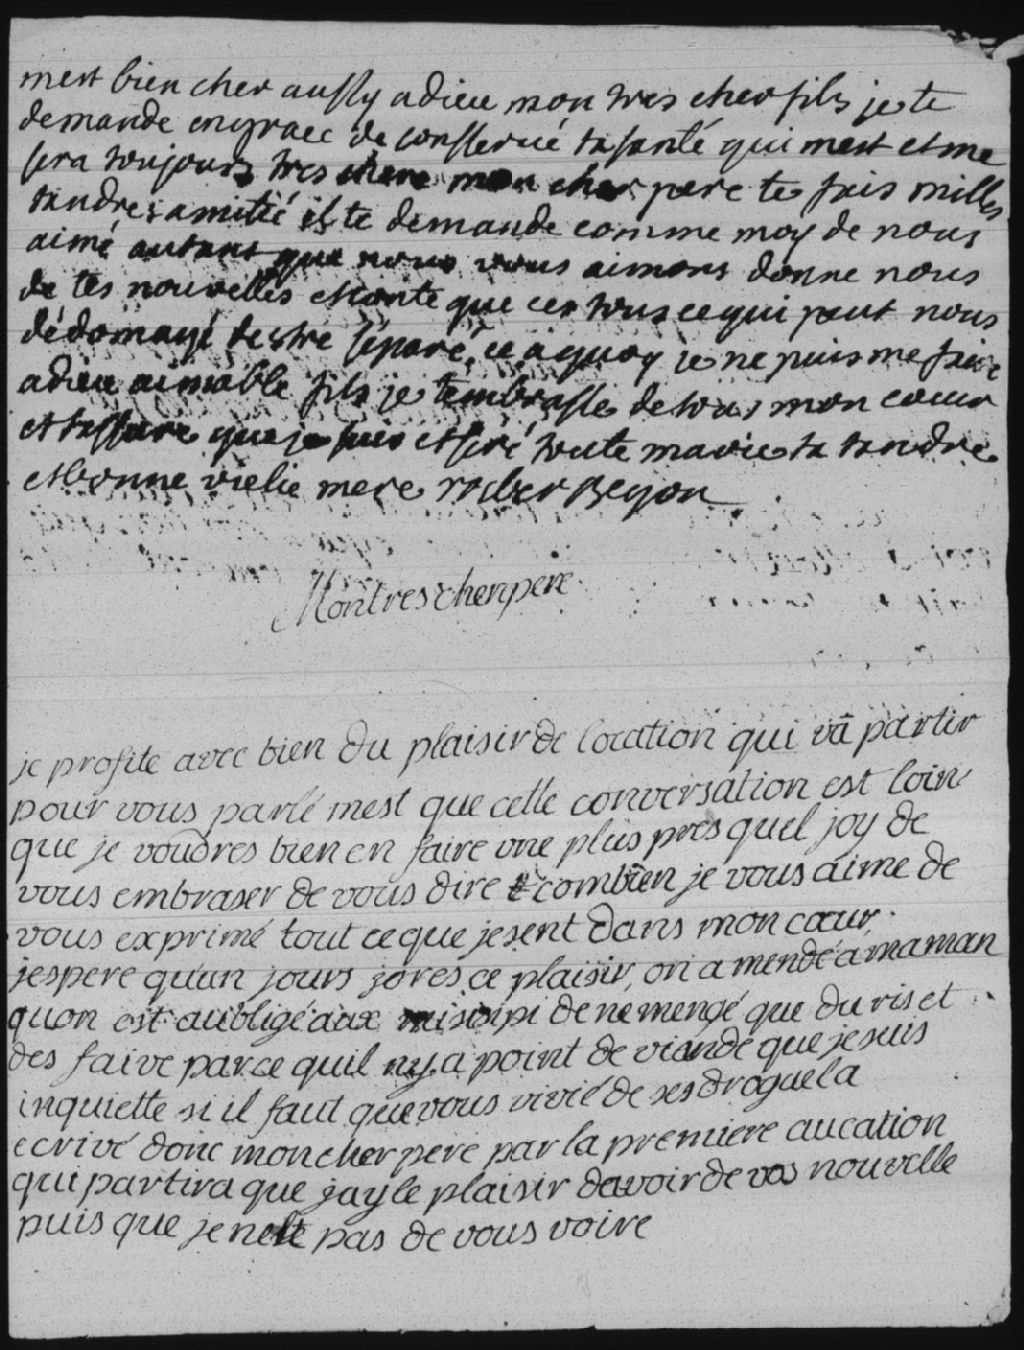 mest bien cher aussy adieu mon tres cher fils je te
demande engrace de consservé ta santé qui mest et me
sera toujours tres chere mon cher pere te fais milles
tandres amitié il te demande comme moy de nous
aimé autant que nous vous aimons donne nous
de tes nouvelles et conte que ces tous ce qui peut nous
dédomagé destre séparé, ce a quoy je ne puis me faire
adieu aimable fils je tembrasse de tous mon coeur
et tassure que je suis et seré toute ma vie ta tandre
et bonne vielie mere
Mon tres cher pere
je profite avec bien du plaisir de location qui va partir
pour vous parlé mest que cette conversation est loin
que je voudres bien en faire une plus pres quel joy de
vous embraser de vous dire combien je vous aime de
vous exprimé tout ce que je sent dans mon coeur,
jespere qu'un jours jores ce plaisir, on a mendé a maman
quon est aubligé aux misisipi de ne mengé que du ris et
des faive parce quil ny a point de viande que je suis
inquiette si il faut que vous vivié de ses drogue la
ecrivé donc mon cher pere par la premiere aucation
qui partira que jay le plaisir davoir de vos nouvelle
puis que je ne pas de vous voire